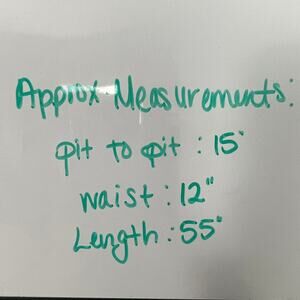 Approx Measurements:
pit to pit : 15"
waist : 12"
Length : 55"